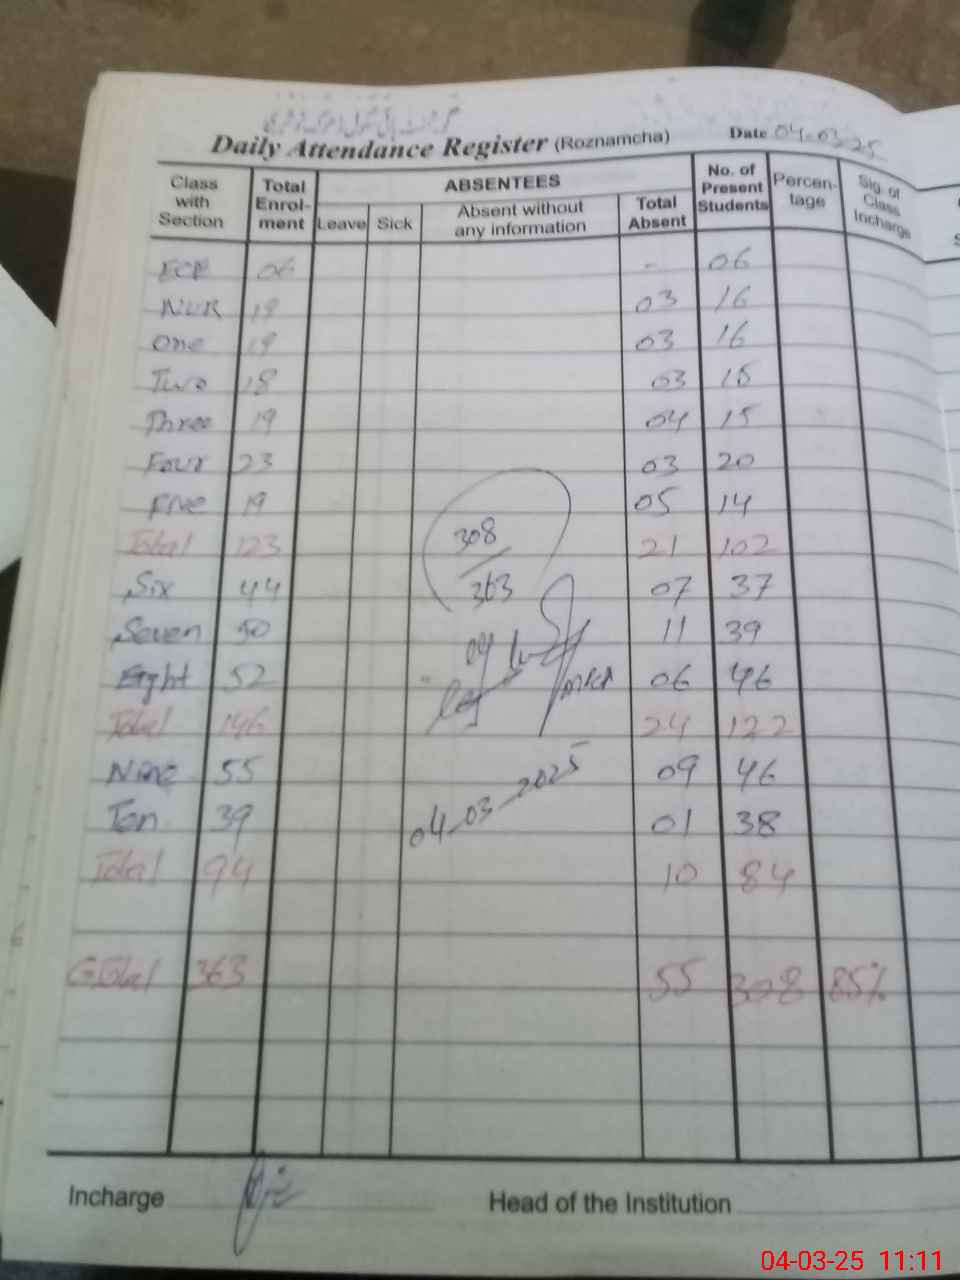 Daily Attendance Register (Roznamcha) Date 04-03-25
Class with Section Total Enrol-ment ABSENTEES No. of Present Students Percen-tage Sig. of Class Incharge
Leave Sick Absent without any information Total Absent
ECE 06 - 06
NUR 19 03 16
One 19 03 16
Two 18 03 15
Three 19 04 15
Four 23 03 20
Five 19 05 14
Total 123 21 102
308
363
Six 44 07 37
Seven 50 11 39
Eight 52 06 46
Total 146 24 122
Nine 55 09 46
04-03-2025
Ten 39 01 38
Total 94 10 84
G.Total 363 55 308 85%
Incharge Head of the Institution
04-03-25 11:11